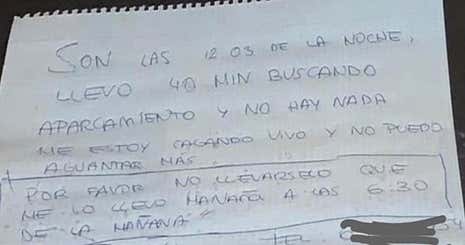 SON LAS 12 03 DE LA NOCHE,
LLEVO 40 MIN BUSCANDO
APARCAMIENTO Y NO HAY NADA
ME ESTOY CAGANDO VIVO Y NO PUEDO
AGUANTAR MÁS.
POR FAVOR NO LLÉVARSELO QUE
ME LO LLEVO MAÑANA A LAS 6.30
DE LA MAÑANA
TEL